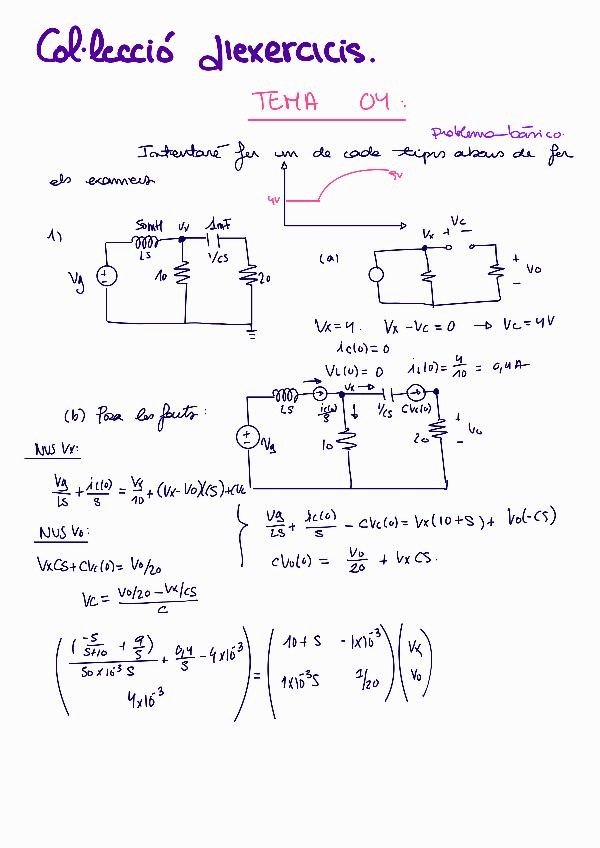 Col·lecció d'exercicis.
TEMA 04:
Problema bàsico.
Intentaré fer un de cada tipus abans de fer
els examens
4V
9V
1)
50mH
Vx
1mF
LS
1/CS
Vg
10
20
(a)
Vx
+ Vc -
+
Vo
-
Vx=4. Vx-Vc=0 → Vc=4V
ic(0)=0
VL(0)=0 iL(0)=4/10=0,4A
(b) Posa les fonts:
LS
Vx
1/CS
CVc(0)
Vg
10
20
+
Vo
-
NUS Vx:
Vg/LS + iL(0)/S = Vx/10 + (Vx-Vo)(CS)+CVc
NUS Vo:
VxCS+CVc(0)= Vo/20
Vc = Vo/20 - Vx/CS / C
Vg/LS + iL(0)/S - CVc(0)=Vx(10+S)+ Vo(-CS)
CVo(0) = Vo/20 + VxCS.
((-5/S+10 + 9/S)/50x10⁻³S + 0,4/S - 4x10⁻³) = (10+S -1x10⁻³) (Vx)
4x10⁻³ 1x10⁻³S 1/20 Vo